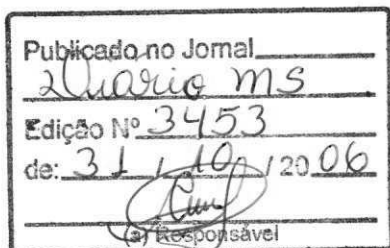 Publicado no Jornal
Diário MS
Edição Nº 3453
de: 31 / 10 / 20 06
(a) Responsável